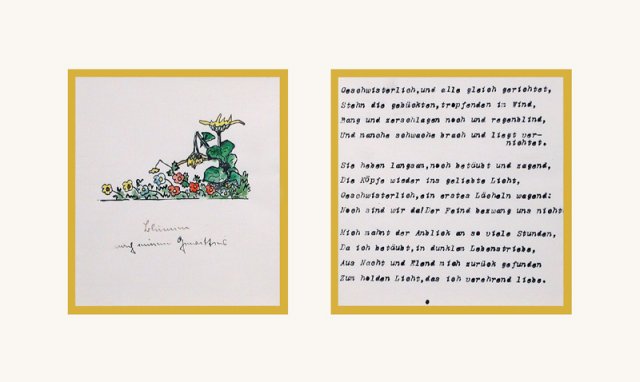 Blumen
nach einem Gewitter
Geschwisterlich,und alle gleich gerichtet,
Stehn die gebückten,tropfenden im Wind,
Bang und zerschlagen noch und regenblind,
Und manche schwache brach und liegt ver-
nichtet.
Sie heben langsam,noch betäubt und zagend,
Die Köpfe wieder ins geliebte Licht,
Geschwisterlich,ein erstes Lächeln wagend:
Noch sind wir da!Der Feind bezwang uns nicht
Mich mahnt der Anblick an so viele Stunden,
Da ich betäubt,in dunklem Lebenstriebe,
Aus Nacht und Elend mich zurück gefunden
Zum holden Licht,das ich verehrend liebe.